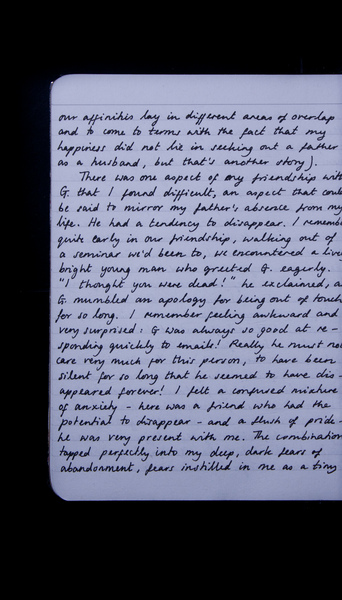 our affinities lay in different areas of overlap
and to come to terms with the fact that my
happiness did not lie in seeking out a father
as a husband, but that's another story).
There was one aspect of my friendship with
G. that I found difficult, an aspect that could
be said to mirror my father's absence from my
life. He had a tendency to disappear. I remembe
quite early in our friendship, walking out of
a seminar we'd been to, we encountered a live
bright young man who greeted G. eagerly.
"I thought you were dead!" he exclaimed, a
G mumbled an apology for being out of touch
for so long. I remember feeling awkward and
very surprised: G was always so good at re-
sponding quickly to emails! Really he must not
care very much for this person, to have been
silent for so long that he seemed to have dis-
appeared forever! I felt a confused mixture
of anxiety - here was a friend who had the
potential to disappear - and a flush of pride -
he was very present with me. The combination
tapped perfectly into my deep, dark fears of
abandonment, fears instilled in me as a tiny